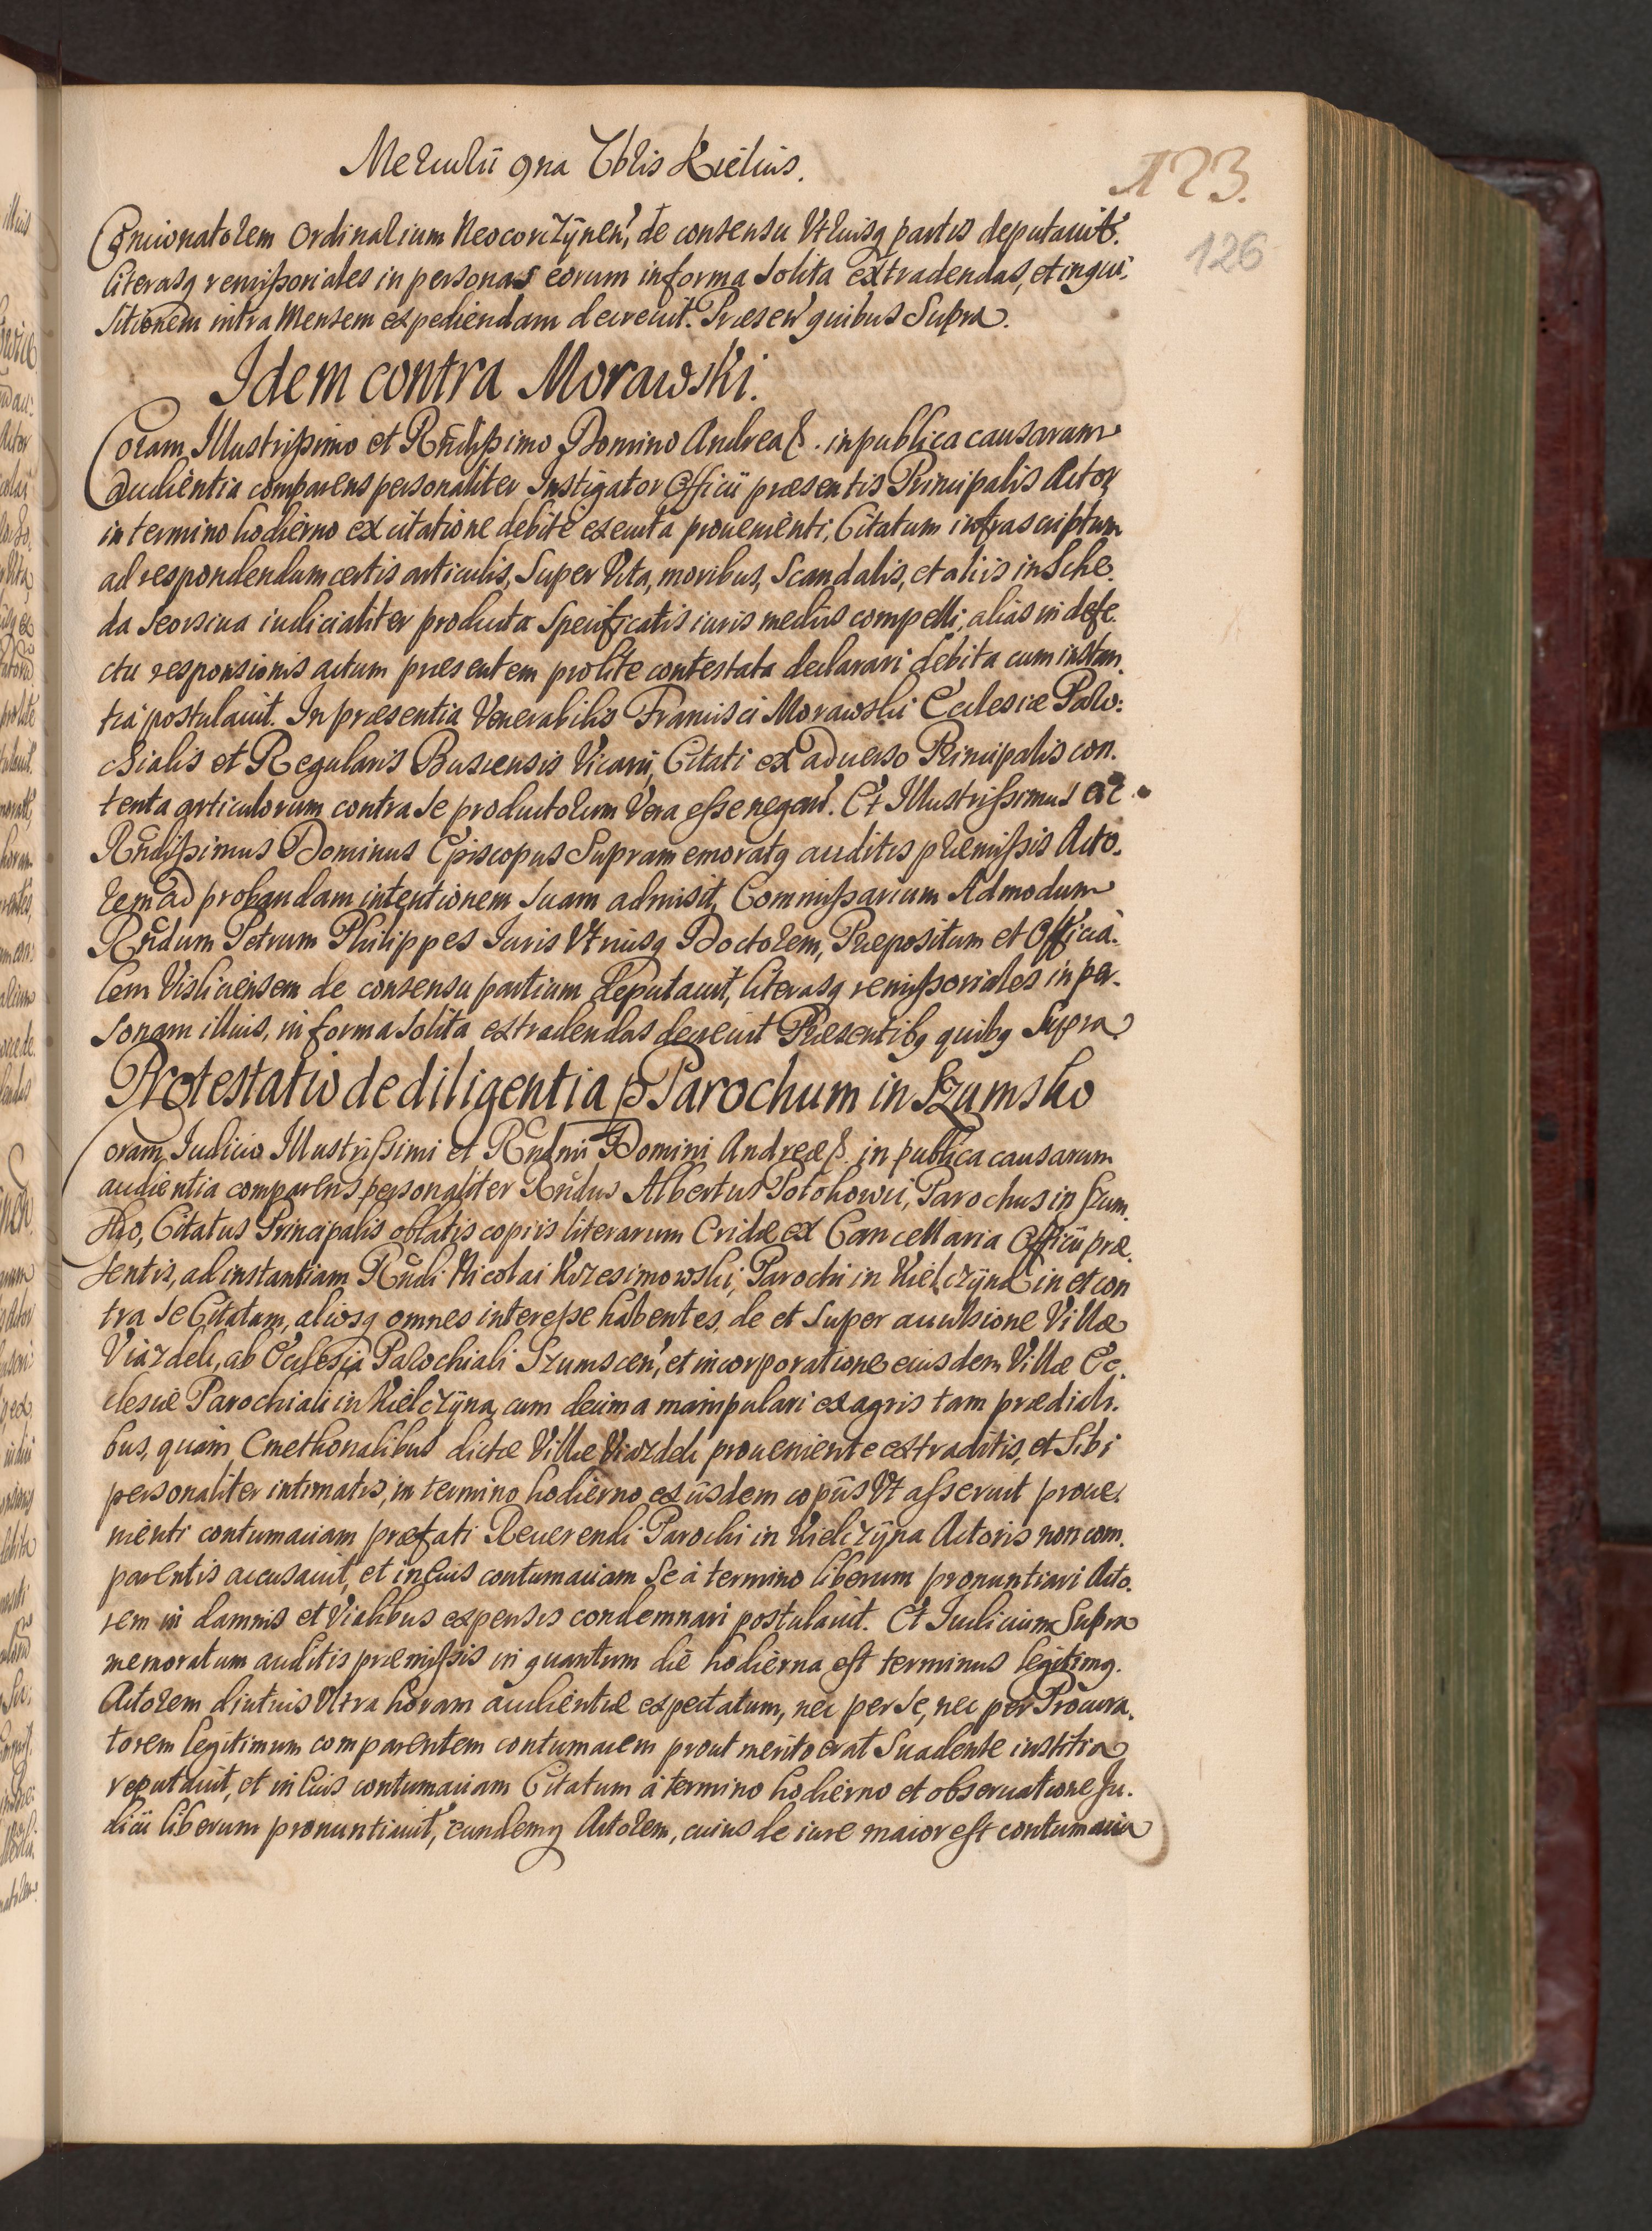 Mercurii 9na 7bris Kielciis.
123.
126
Concionatorem Ordinalium Neocorczÿnen', de consensu Vtriusq partis deputauit.
literasq remissoriales in personas eorum in forma solita extradendas, et inqui:
sitionem intra Mensem expediendam decreuit. Præsen' quibus Supra.
Idem contra Morawski.
Coram Illustrissimo et Rndissimo Domino Andrea &. in publica causarum
audientia comparens personaliter Instigator Officii præsentis Principalis Actor
in termino hodierno ex citatione debite executa prouenienti, Citatum infrascriptum
ad respondendum certis articulis, Super Vita, moribus, Scandalis, et aliis in Sche.
da seorsiua iudicialiter producta Specificatis iuris mediis compelli, alias in defe.
ctu responsionis actum præsentem pro lite contestata declarari debita cum instan
tia postulauit. In præsentia Venerabilis Francisci Morawski Ecclesiæ Paro:
chialis et Regularis Buscensis Vicarii, Citati ex aduerso Principalis con.
tenta articulorum contra se productorum Vera esse negan'. Et Illustrissimus et
Rndissimus Dominus Episcopus Supramemoratq auditis præmissis Acto.
rem ad probandam intentionem suam admisit, Commissarium Admodum
Rndum Petrum Philippes Iuris Vtriusq Doctorem, Præpositum et Officia.
lem Visliciensem de consensu partium deputauit, literasq remissoriales in per.
sonam illius, in forma solita extradendas decreuit Præsentibq quibq Supra
Protestatio de diligentia p Parochum in Szumsko
Coram Iudicio Illustrissimi et Rndmi Domini Andreæ &. in publica causarum
audientia comparens personaliter Rndus Albertus Potokowii, Parochus in Szum.
sko, Citatus Principalis oblatis copiis literarum Cridæ ex Cancellaria Officii præ.
sentis, ad instantiam Rndi Nicolai Krzesimowski, Parochi in Kielczÿna in et con
tra se Citatum, aliosq omnes interesse habentes, de et super auulsione Villæ
Viazdeli, ab Ecclesia Parochiali Szumscen', et incorporatione eiusdem Villæ Ec.
clesiæ Parochiali in Kielczÿna, cum decima manipulari ex agris tam prædiali.
bus, quam Cmethonalibus dictæ Villæ Viazdeli proueniente extraditis, et sibi
personaliter intimatis, in termino hodierno ex iisdem copiis Vt asseruit proue.
nienti contumaciam præfati Reuerendi Parochi in Kielczÿna Actoris non com.
parentis accusauit, et in eius contumaciam se à termino liberum pronuntiari Acto.
rem in damnis et Vialibus expensis condemnari postulauit. Et Iudicium Supra
memoratum auditis præmissis in quantum die hodierna est terminus legitimq.
Actorem diutius Vltra horam audientiæ expectatum, nec per se, nec per Procura.
torem legitimum comparentem contumacem prout merito erat Suadente iustitia
reputauit, et in eius contumaciam Citatum à termino hodierno et obseruatione Iu.
dicii liberum pronuntiauit, eundemq Actorem, cuius de iure maior est contumacia